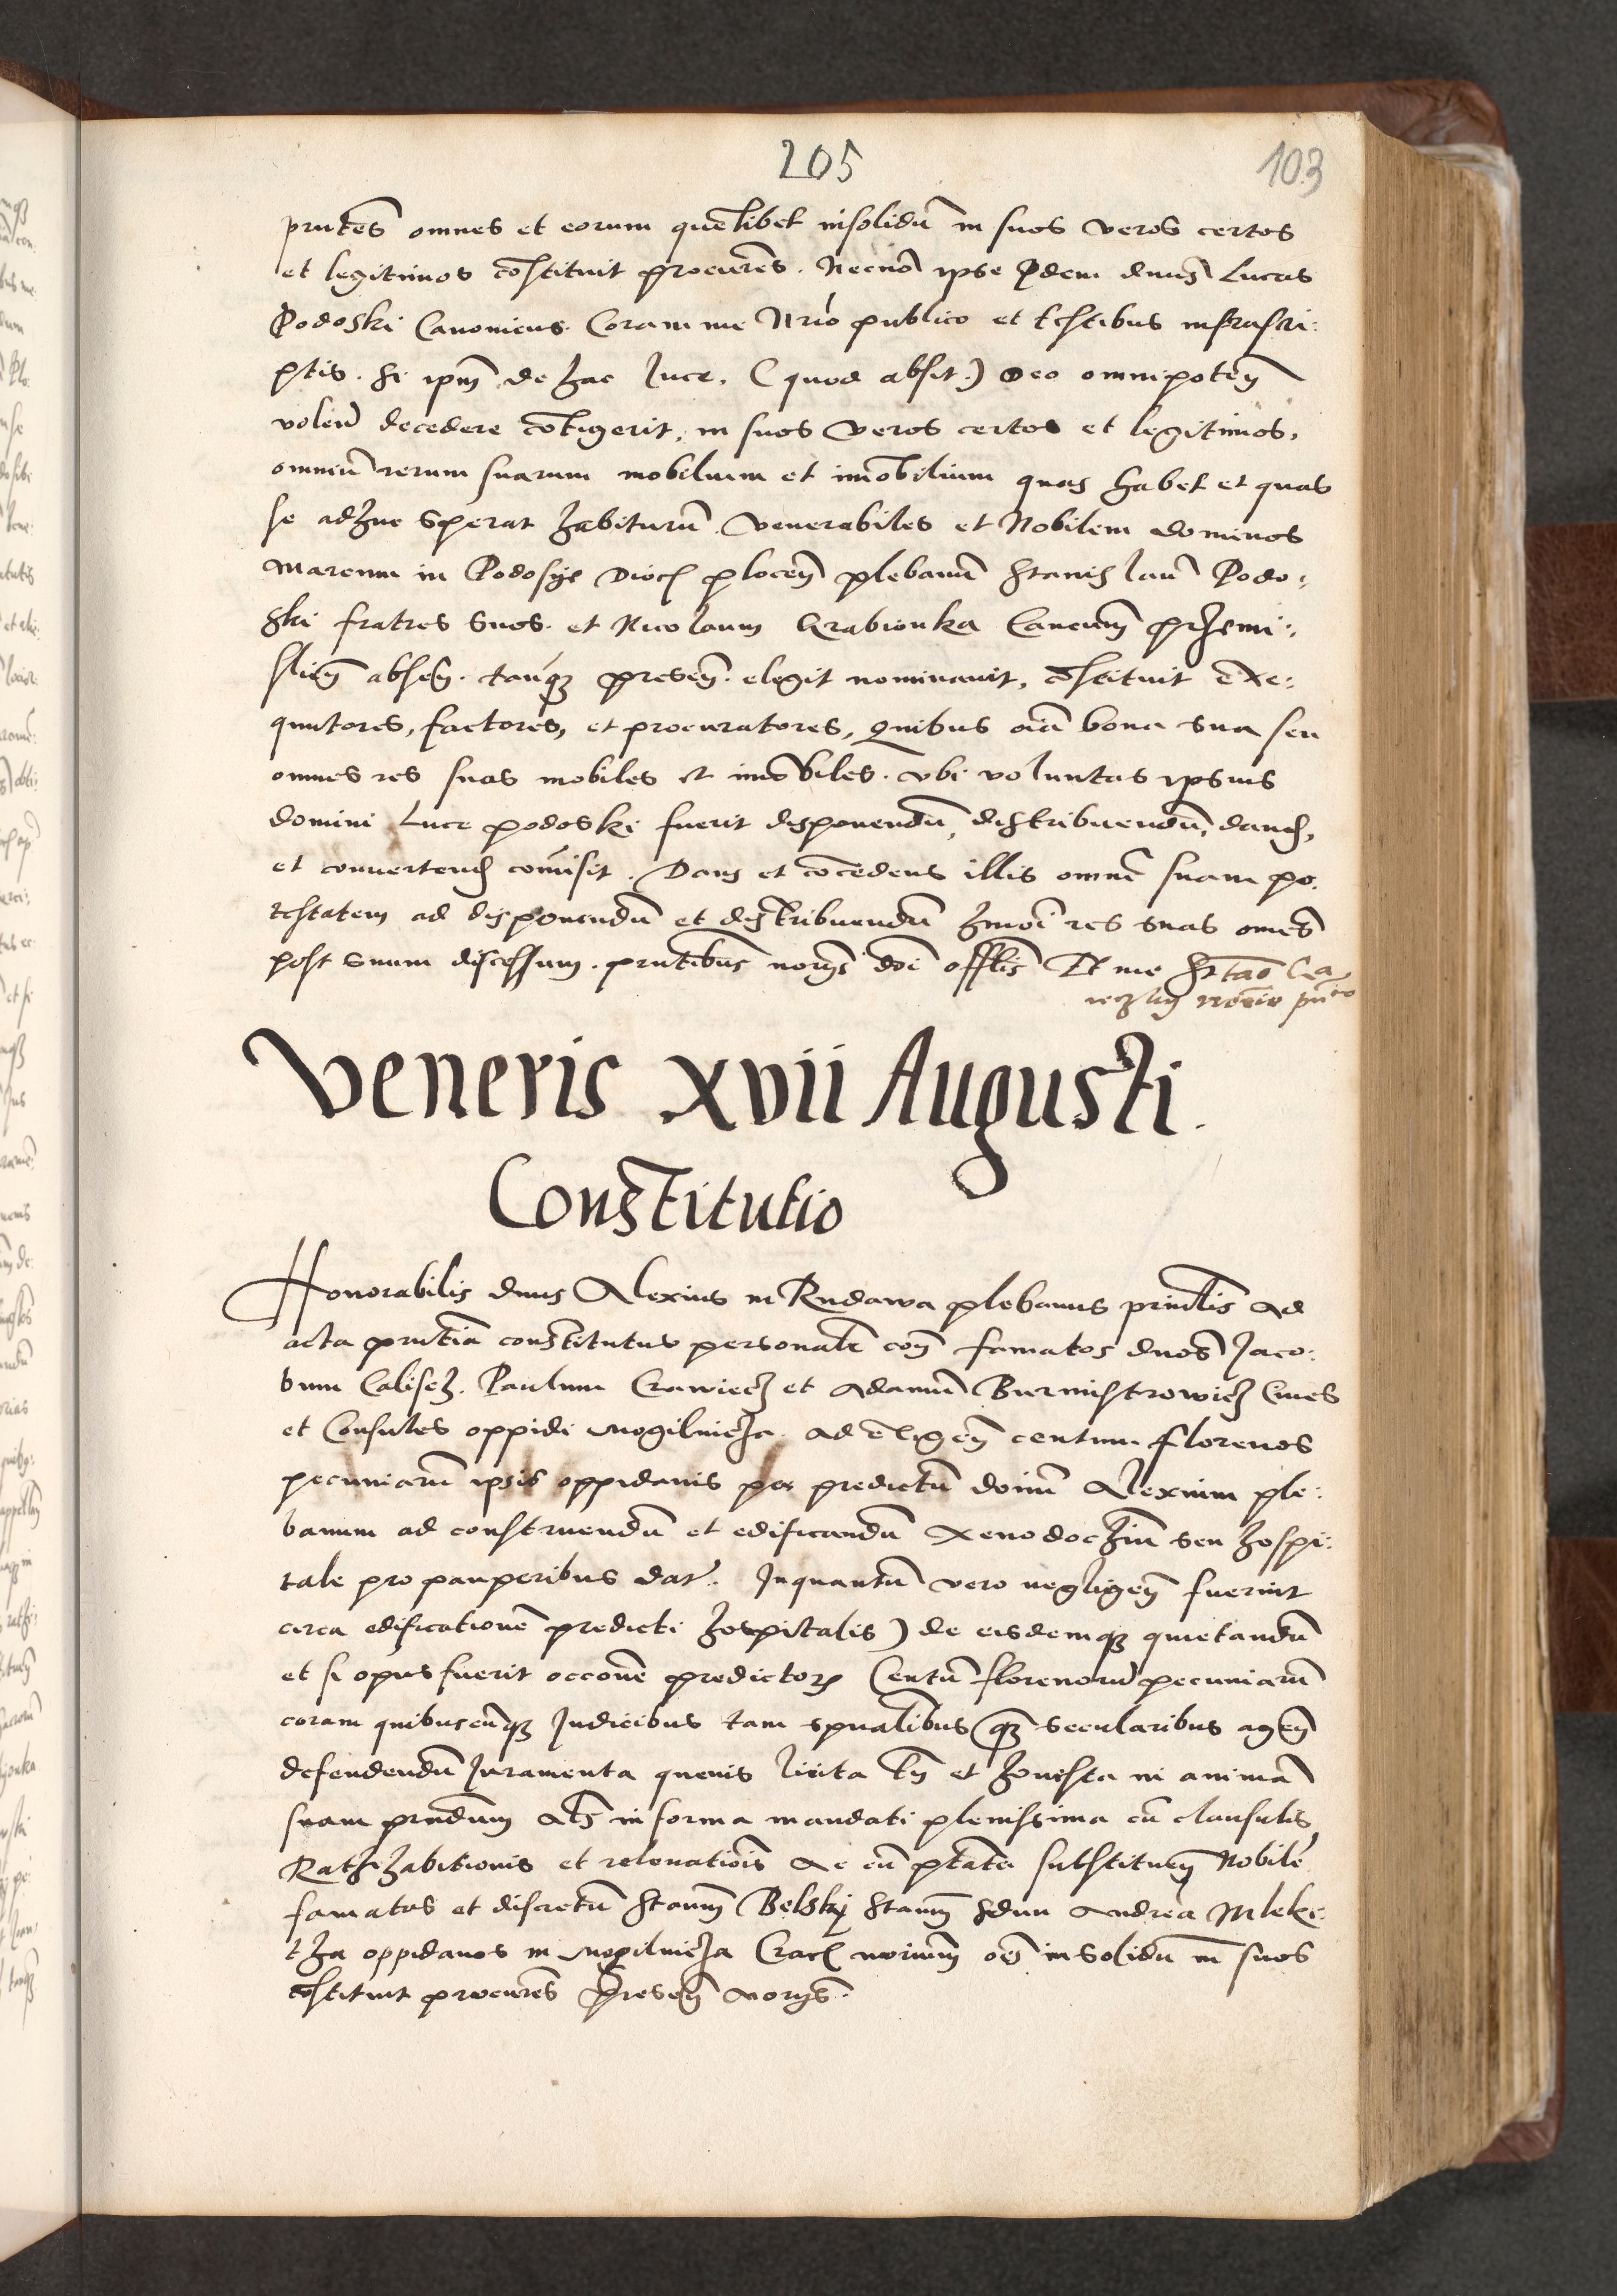 205
103
prntes omnes et eorum quelibet insolidu in suos veros certos
et legitimos costituit procures. Necno ipse Idem dnus Lucas
Podoski Canonicus. Coram me Nrio publico et testibus infrascri:
ptis. Si ipm de hac luce, (quod absit.) Deo omnipoten
volen decedere cotigerit, in suos veros certos et legitimos,
omniu rerum suarum mobilium et imobilium quas habet et quas
se adhuc sperat habituru. Venerabiles et Nobilem dominos
in Podosye Dioc plocen plebanu Stanislau Podo:
ski fratres suos. et Nicolaum Grabionka Premi:
slien absen. tanq presen. elegit nominavit, costituit exe:
quutores, factores, et procuratores, Quibus oia bona sua seu
omnes res suas mobiles et imobiles. ubi voluntas ipsius
domini Luce podoski fuerit disponendu, distribuendu, dand,
et convertend comisit. Dans et cocedens illis omne suam po
testatem ad disponendu et distribuendu hmoi res suas omes
post suum discessum. prntibus dni offlis Et me
Veneris xvii Augusti.
Constitutio
Honorabilis dnus Alexius in Rudawa plebanus prinlis Ad
acta prntia constitutus personalr famatos dnos Jaco:
bum Calisch. Paulum Crawiecz et Adamu Burmistrowicz Cives
et Consules oppidi Mogilnicza. ad exigen centum florenos
pecuniaru ipsis oppidanis per predictu doinu Alexium ple:
banum ad construendu et edificandu Xenodochiu seu hospi:
tale pro pauperibus dat. Inquantu vero negligen fuerint
circa edificatione predicti hospitalis) de eisdemq quietandu
et si opus fuerit occone predictor Centu florenoru pecuniaru
coram quibuscunq Judicibus tam spualibus q secularibus agen
defendendu Juramenta quevis licita tn et honesta in anima
suam prndum in forma mandati plenissima cu clausulis
Ratihabitionis et relevatiois Ac cu ptate substituen Nobile
famatos et discretu Stanm Belskj Stanm Andrea Mleki:
tha oppidanos in Mogilnicza oes insolidu in suos
costituit procures Presen